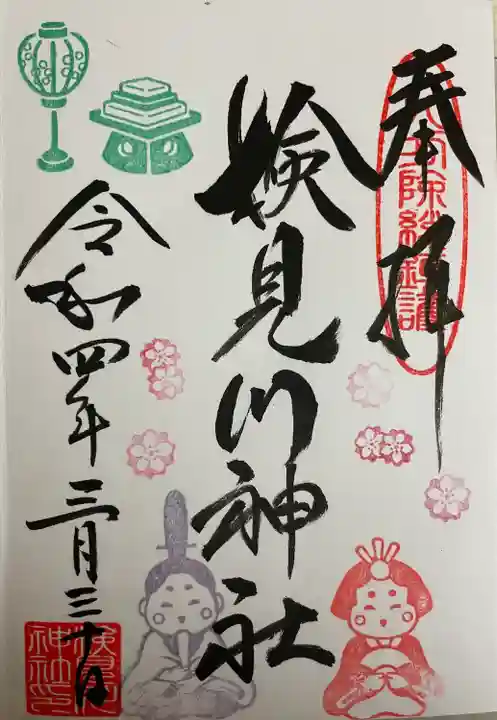 奉拝
八方除総鎮護
検見川神社
令和四年三月三十日
検見川神社印